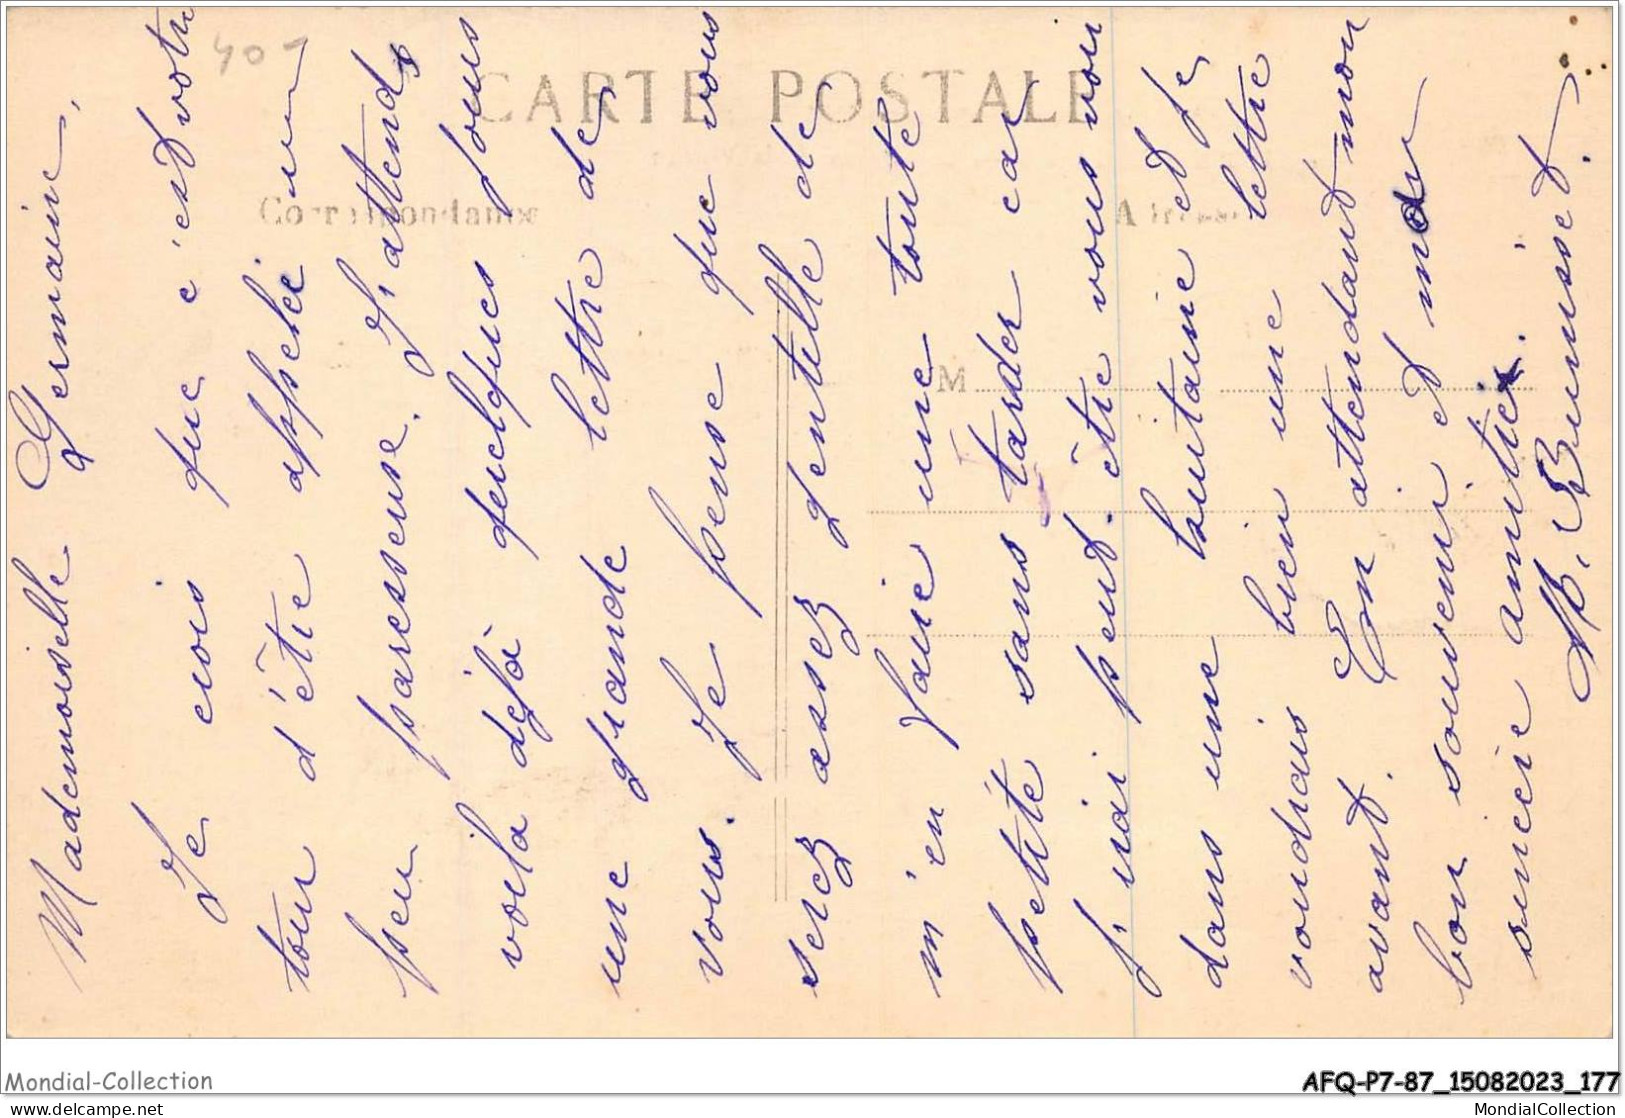 40 -
CARTE POSTALE
Correspondance
Adresse
M
Mademoiselle Germaine,
Je crois que c'est votre
tour d'être appelée un
peu paresseuse. J'attends
voila déjà quelques jours
une grande lettre de
vous. Je pense que vous
serez assez gentille de
m'en faire une toute
petite sans tarder car
j'irai peut-être vous voir
dans une huitaine et je
voudrais bien une lettre
avant. En attendant mon
bon souvenir et ma
sincère amitié.
M. Bunisset.
Mondial-Collection
AFQ-P7-87_15082023_177
www.delcampe.net
MondialCollection